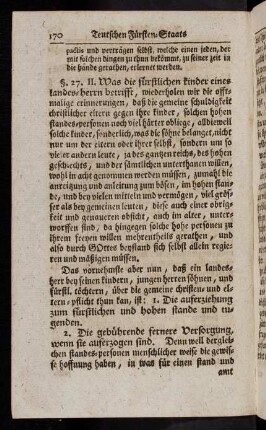 170 Teutschen Fürsten-Staats
pactis und verträgen selbst, welche einen jeden, der
mit solchen dingen zu thun bekömmt, zu seiner zeit in
die hände gerathen, erlernet werden.
§. 27. II. Was die fürstlichen kinder eines
landes-herrn betrifft, wiederholen wir die offt-
malige erinnerungen, daß die gemeine schuldigkeit
christlicher eltern gegen ihre kinder, solchen hohen
standes-personen noch viel härter obliege, alldieweil
solche kinder, sonderlich, was die söhne belanget, nicht
nur um der eltern oder ihrer selbst, sondern um so
vieler andern leute, ja des gantzen reichs, des hohen
geschlechts, und der sämtlichen unterthanen willen,
wohl in acht genommen werden müssen, zumahl die
anreitzung und anleitung zum bösen, im hohen stan-
de, und bey den mitteln und vermögen, viel grös-
ser als bey gemeinen leuten, diese auch einer obrig-
keit und genauern obsicht, auch im alter, unter-
worffen sind, da hingegen solche hohe personen zu
ihrem freyen willen mehrentheils gerathen, und
also durch GOttes beystand sich selbst allein regie-
ren und mäßigen müssen.
Das vornehmste aber nun, daß ein landes-
herr bey seinen kindern, jungen herren söhnen, und
fürstl. töchtern, über die gemeine christen- und el-
tern-pflicht thun kan, ist: 1. Die auferziehung
zum fürstlichen und hohen stande und tu-
genden.
2. Die gebührende fernere Versorgung,
wenn sie auferzogen sind. Denn weil derglei-
chen standes-personen menschlicher weise die gewis-
se hoffnung haben, in was für einen stand und
amt